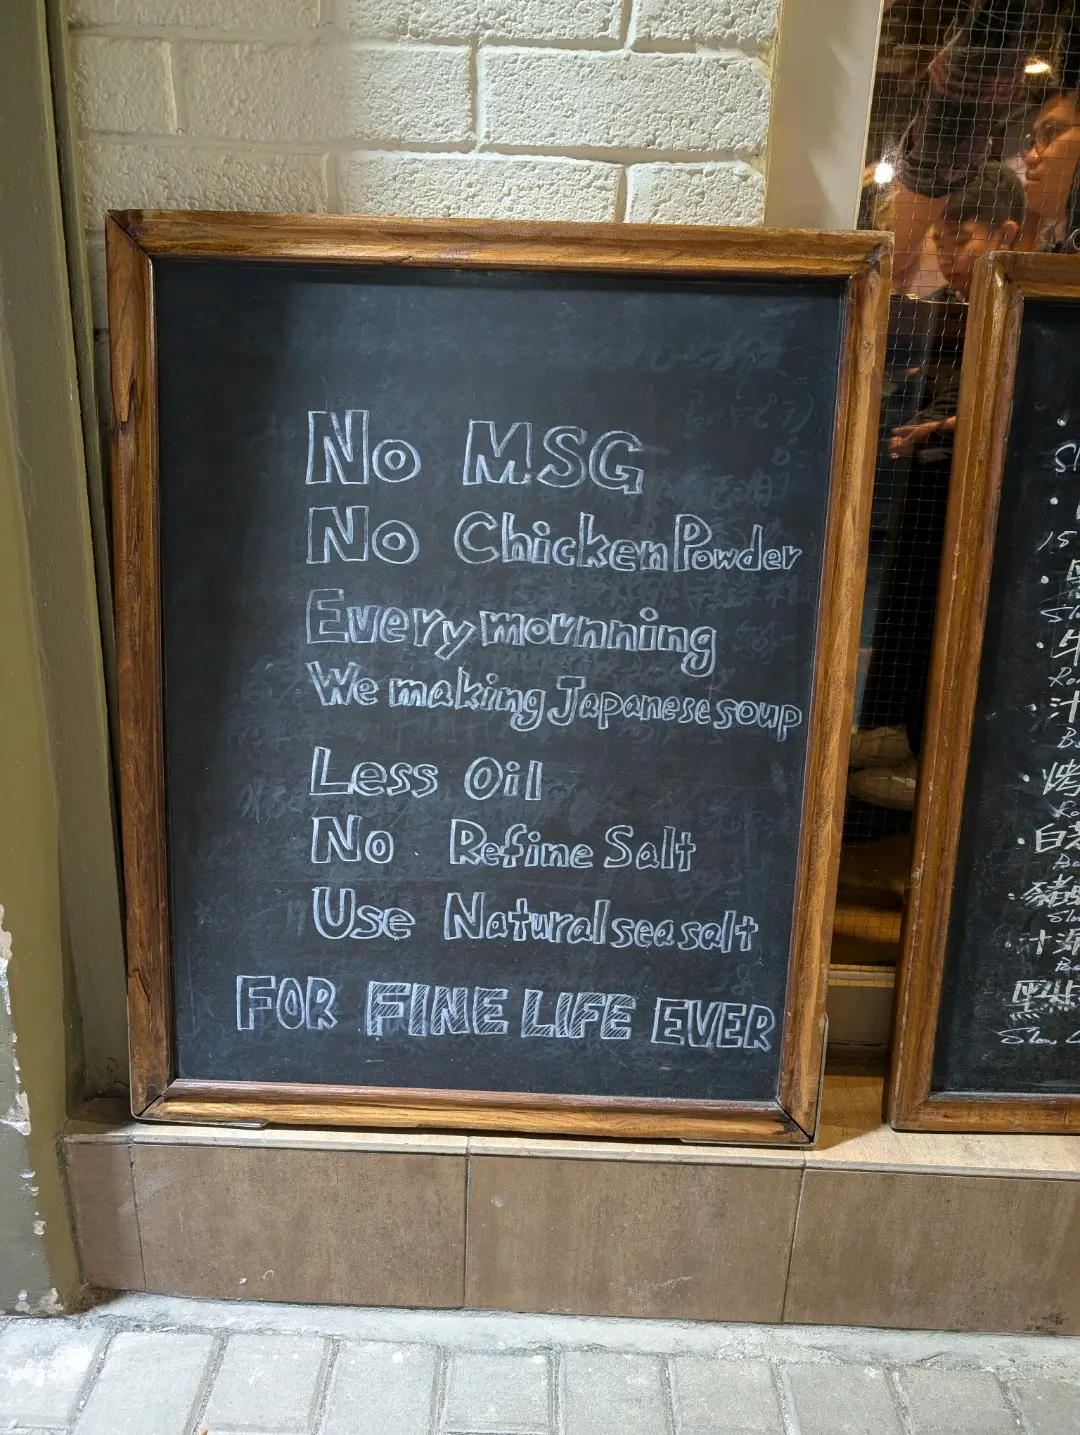 No MSG
No Chicken Powder
Every mornning
We making Japanese soup
Less Oil
No Refine Salt
Use Natural sea salt
FOR FINE LIFE EVER
15
牛
汁
烤
白
汁
Slow